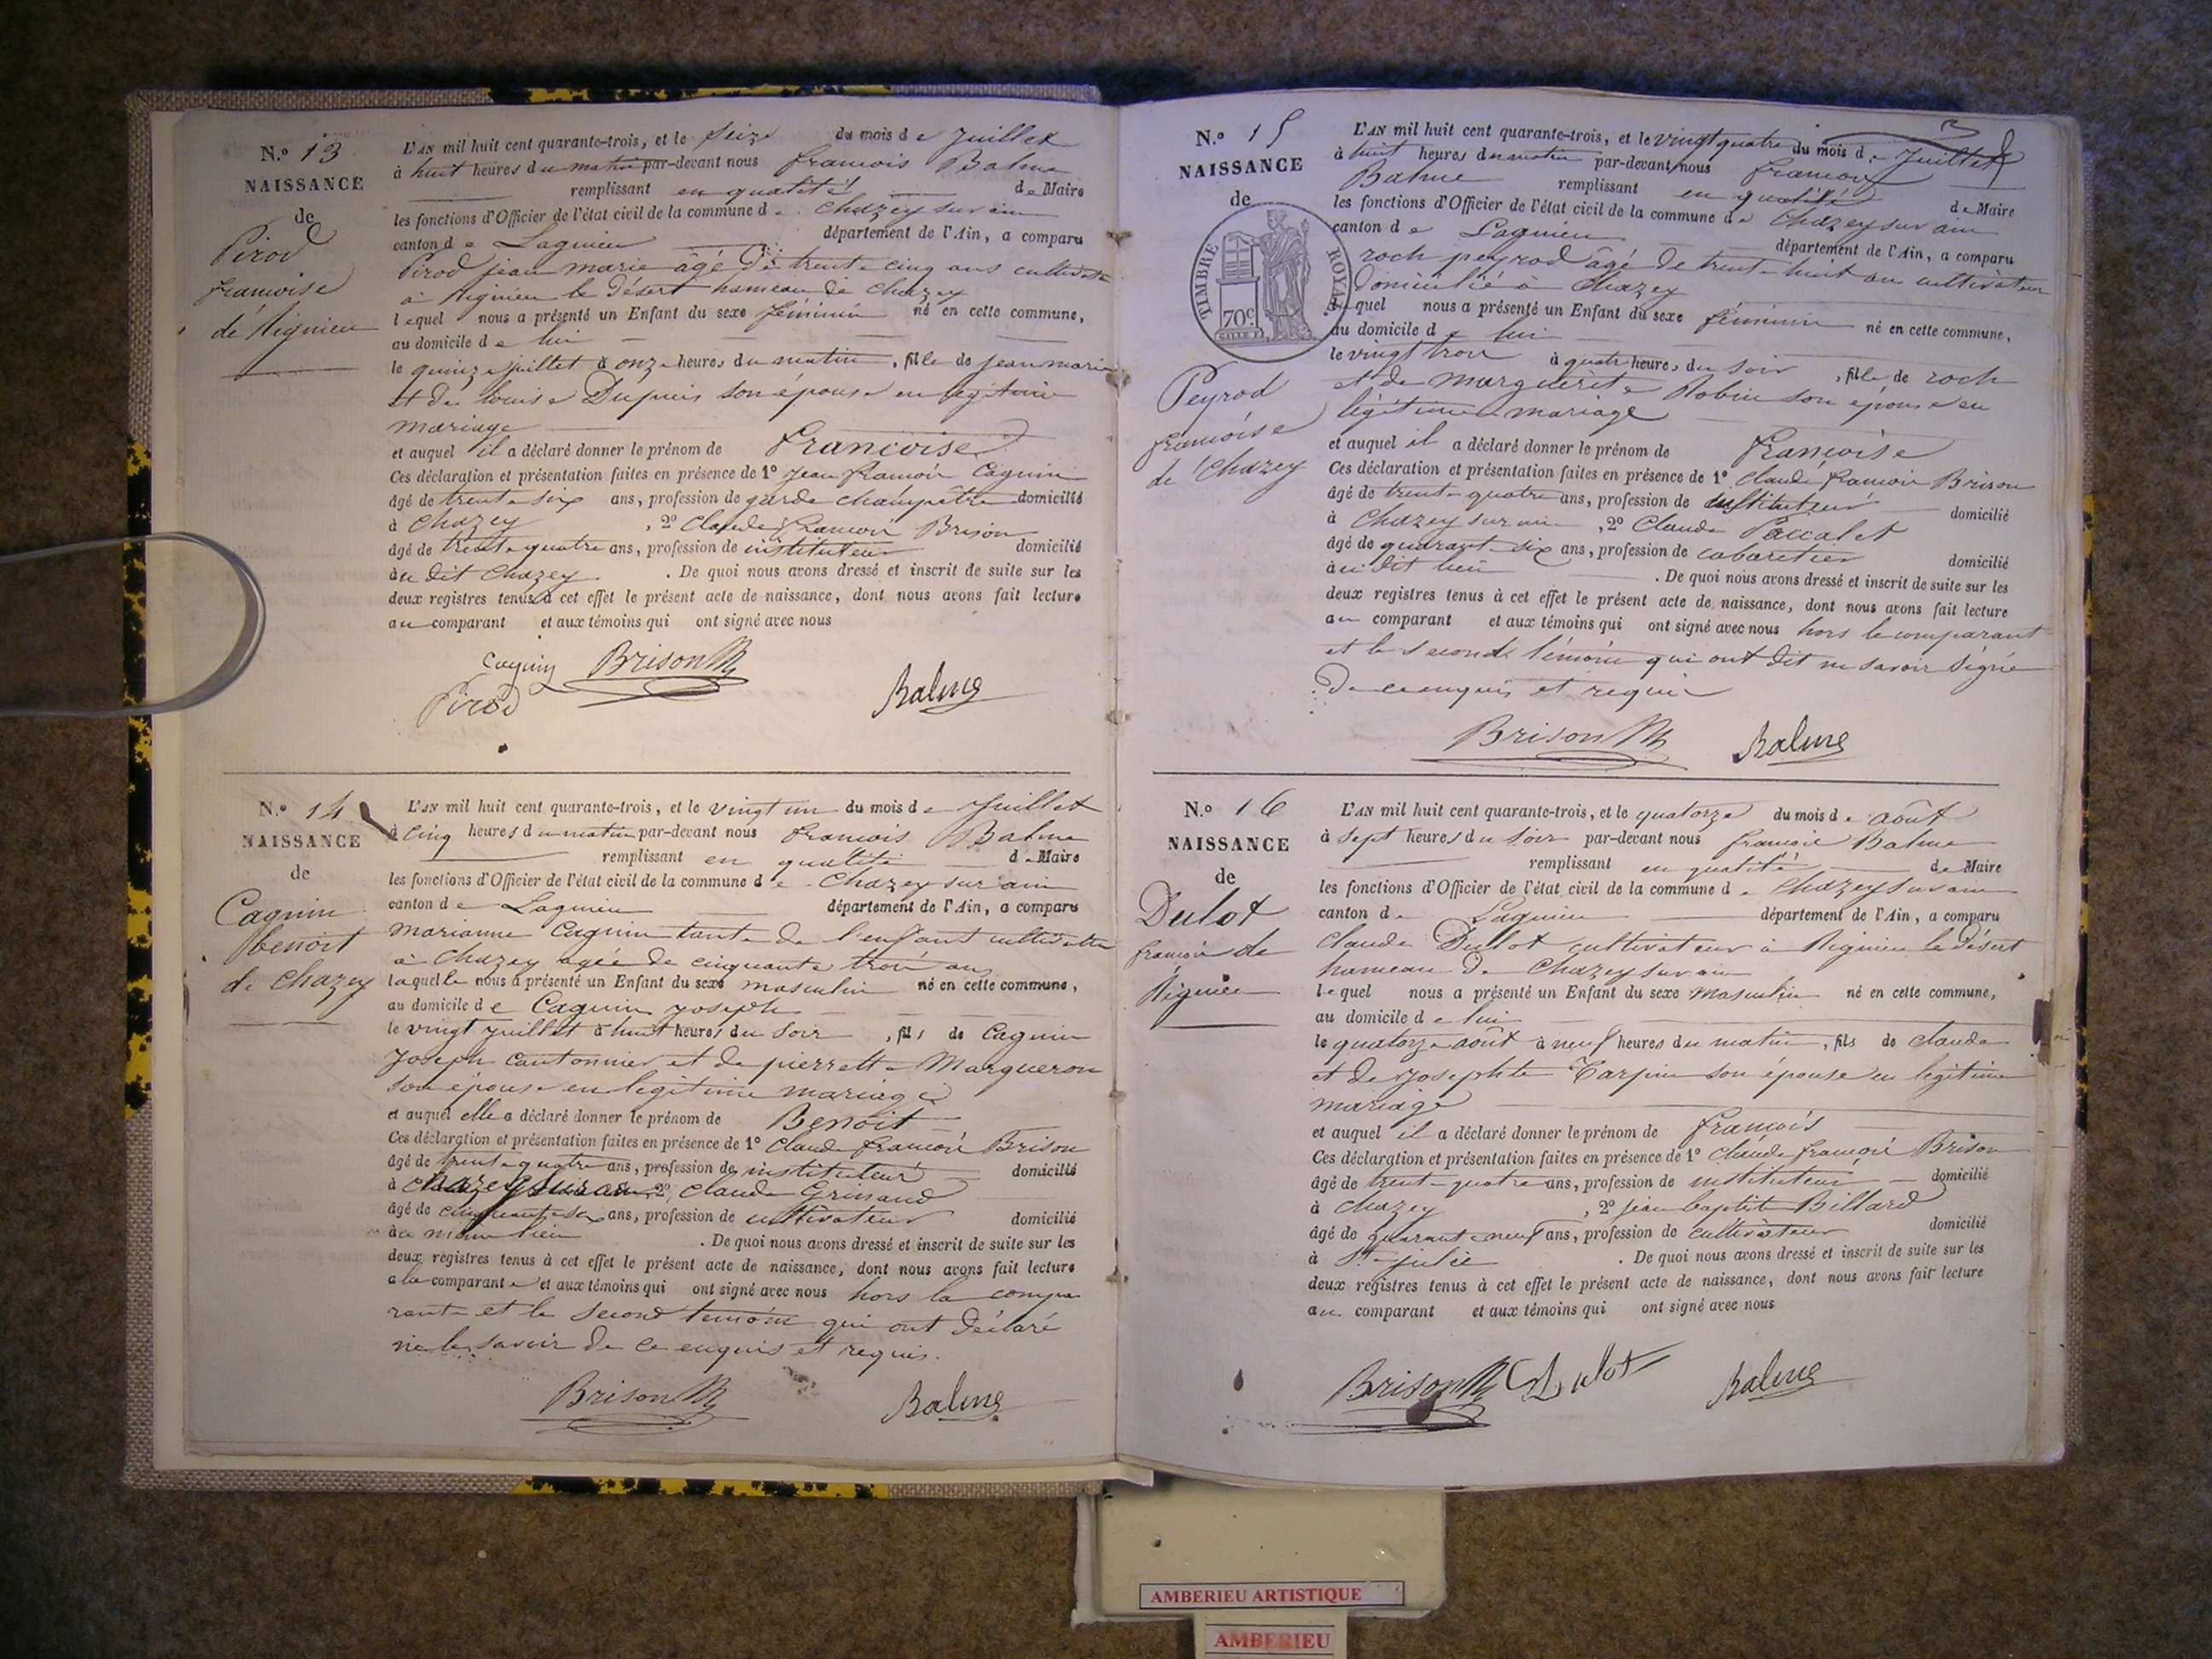 N.º 13
NAISSANCE
de
Pirod
francoise
de Rignieu
L'AN mil huit cent quarante-trois, et le seize du mois de Juillet
à huit heures du matin par-devant nous francois Balme
remplissant en qualité de Maire
les fonctions d'Officier de l'état civil de la commune de Chazey sur ain
canton de Lagnieu département de l'Ain, a comparu
Pirod jean marie âgé de trente cinq ans cultivateur
à Rignieu le désert hameau de Chazey
lequel nous a présenté un Enfant du sexe féminin né en cette commune,
au domicile de lui
le quinze juillet à onze heures du matin, fille de jean marie
et de louise Dupuis son épouse en légitime
mariage
et auquel il a déclaré donner le prénom de francoise
Ces déclaration et présentation faites en présence de 1º jean francois Cagnin
âgé de trente six ans, profession de garde champêtre domicilié
à Chazey, 2º Claude francois Brison
âgé de trente quatre ans, profession de instituteur domicilié
au dit Chazey. De quoi nous avons dressé et inscrit de suite sur les
deux registres tenus à cet effet le présent acte de naissance, dont nous avons fait lecture
au comparant et aux témoins qui ont signé avec nous
Cagnin Brison
Pirod Balme
N.º 14
NAISSANCE
de
Cagnin
benoit
de Chazey
L'AN mil huit cent quarante-trois, et le vingt un du mois de Juillet
à cinq heures du matin par-devant nous francois Balme
remplissant en qualité de Maire
les fonctions d'Officier de l'état civil de la commune de Chazey sur ain
canton de Lagnieu département de l'Ain, a comparu
marianne Cagnin tante de l'enfant cultivatrice
à Chazey agée de cinquante trois ans
laquelle nous a présenté un Enfant du sexe masculin né en cette commune,
au domicile de Cagnin joseph
le vingt juillet à huit heures du soir, fils de Cagnin
Joseph cantonnier et de pierrette Margueron
son épouse en legitime mariage
et auquel elle a déclaré donner le prénom de Benoit
Ces déclaration et présentation faites en présence de 1º Claude francois Brison
âgé de trente quatre ans, profession de instituteur domicilié
à Chazey sur ain, 2º, Claude Grinand
âgé de ans, profession de cultivateur domicilié
au même lieu. De quoi nous avons dressé et inscrit de suite sur les
deux registres tenus à cet effet le présent acte de naissance, dont nous avons fait lecture
a la comparante et aux témoins qui ont signé avec nous hors la compa
rante et le second temoin qui ont déclaré
ne le savoir de ce enquis et requis.
Brison Balme
N.º 15
NAISSANCE
de
TIMBRE ROYAL
70c
Peyrod
francoise
de Chazey
L'AN mil huit cent quarante-trois, et le vingt quatre du mois de Juillet
à huit heures du matin par-devant nous francois
Balme remplissant en qualité de Maire
les fonctions d'Officier de l'état civil de la commune de Chazey sur ain
canton de Lagnieu département de l'Ain, a comparu
roch peyrod âgé de trente huit ans cultivateur
domicilié à Chazey
lequel nous a présenté un Enfant du sexe féminin né en cette commune,
au domicile de lui
le vingt trois à quatre heures du soir, fille de roch
et de marguerite Robin son épouse en
légitime mariage
et auquel il a déclaré donner le prénom de françoise
Ces déclaration et présentation faites en présence de 1º Claude francois Brison
âgé de trente quatre ans, profession de instituteur domicilié
à Chazey sur ain, 2º Claude Pascalet
âgé de quarante six ans, profession de cabaretier domicilié
au dit lieu. De quoi nous avons dressé et inscrit de suite sur les
deux registres tenus à cet effet le présent acte de naissance, dont nous avons fait lecture
au comparant et aux témoins qui ont signé avec nous hors le comparant
et le second témoin qui ont dit ne savoir signé
De ce enquis et requis
Brison Balme
N.º 16
NAISSANCE
de
Dulot
francois de
Rignieu
L'AN mil huit cent quarante-trois, et le quatorze du mois de août
à sept heures du soir par-devant nous francois Balme
remplissant en qualité de Maire
les fonctions d'Officier de l'état civil de la commune de Chazey sur ain
canton de Lagnieu département de l'Ain, a comparu
Claude Dulot cultivateur à Rignieu le désert
hameau de Chazey sur ain
lequel nous a présenté un Enfant du sexe masculin né en cette commune,
au domicile de lui
le quatorze août à neuf heures du matin, fils de claude
et de josephte Tarpin son épouse en legitime
mariage
et auquel il a déclaré donner le prénom de francois
Ces déclaration et présentation faites en présence de 1º Claude francois Brison
âgé de trente quatre ans, profession de instituteur domicilié
à Chazey, 2º jean baptiste Billard
âgé de quarante neuf ans, profession de cultivateur domicilié
à Ste julie. De quoi nous avons dressé et inscrit de suite sur les
deux registres tenus à cet effet le présent acte de naissance, dont nous avons fait lecture
au comparant et aux témoins qui ont signé avec nous
Brison Dulot Balme
AMBERIEU ARTISTIQUE
AMBERIEU